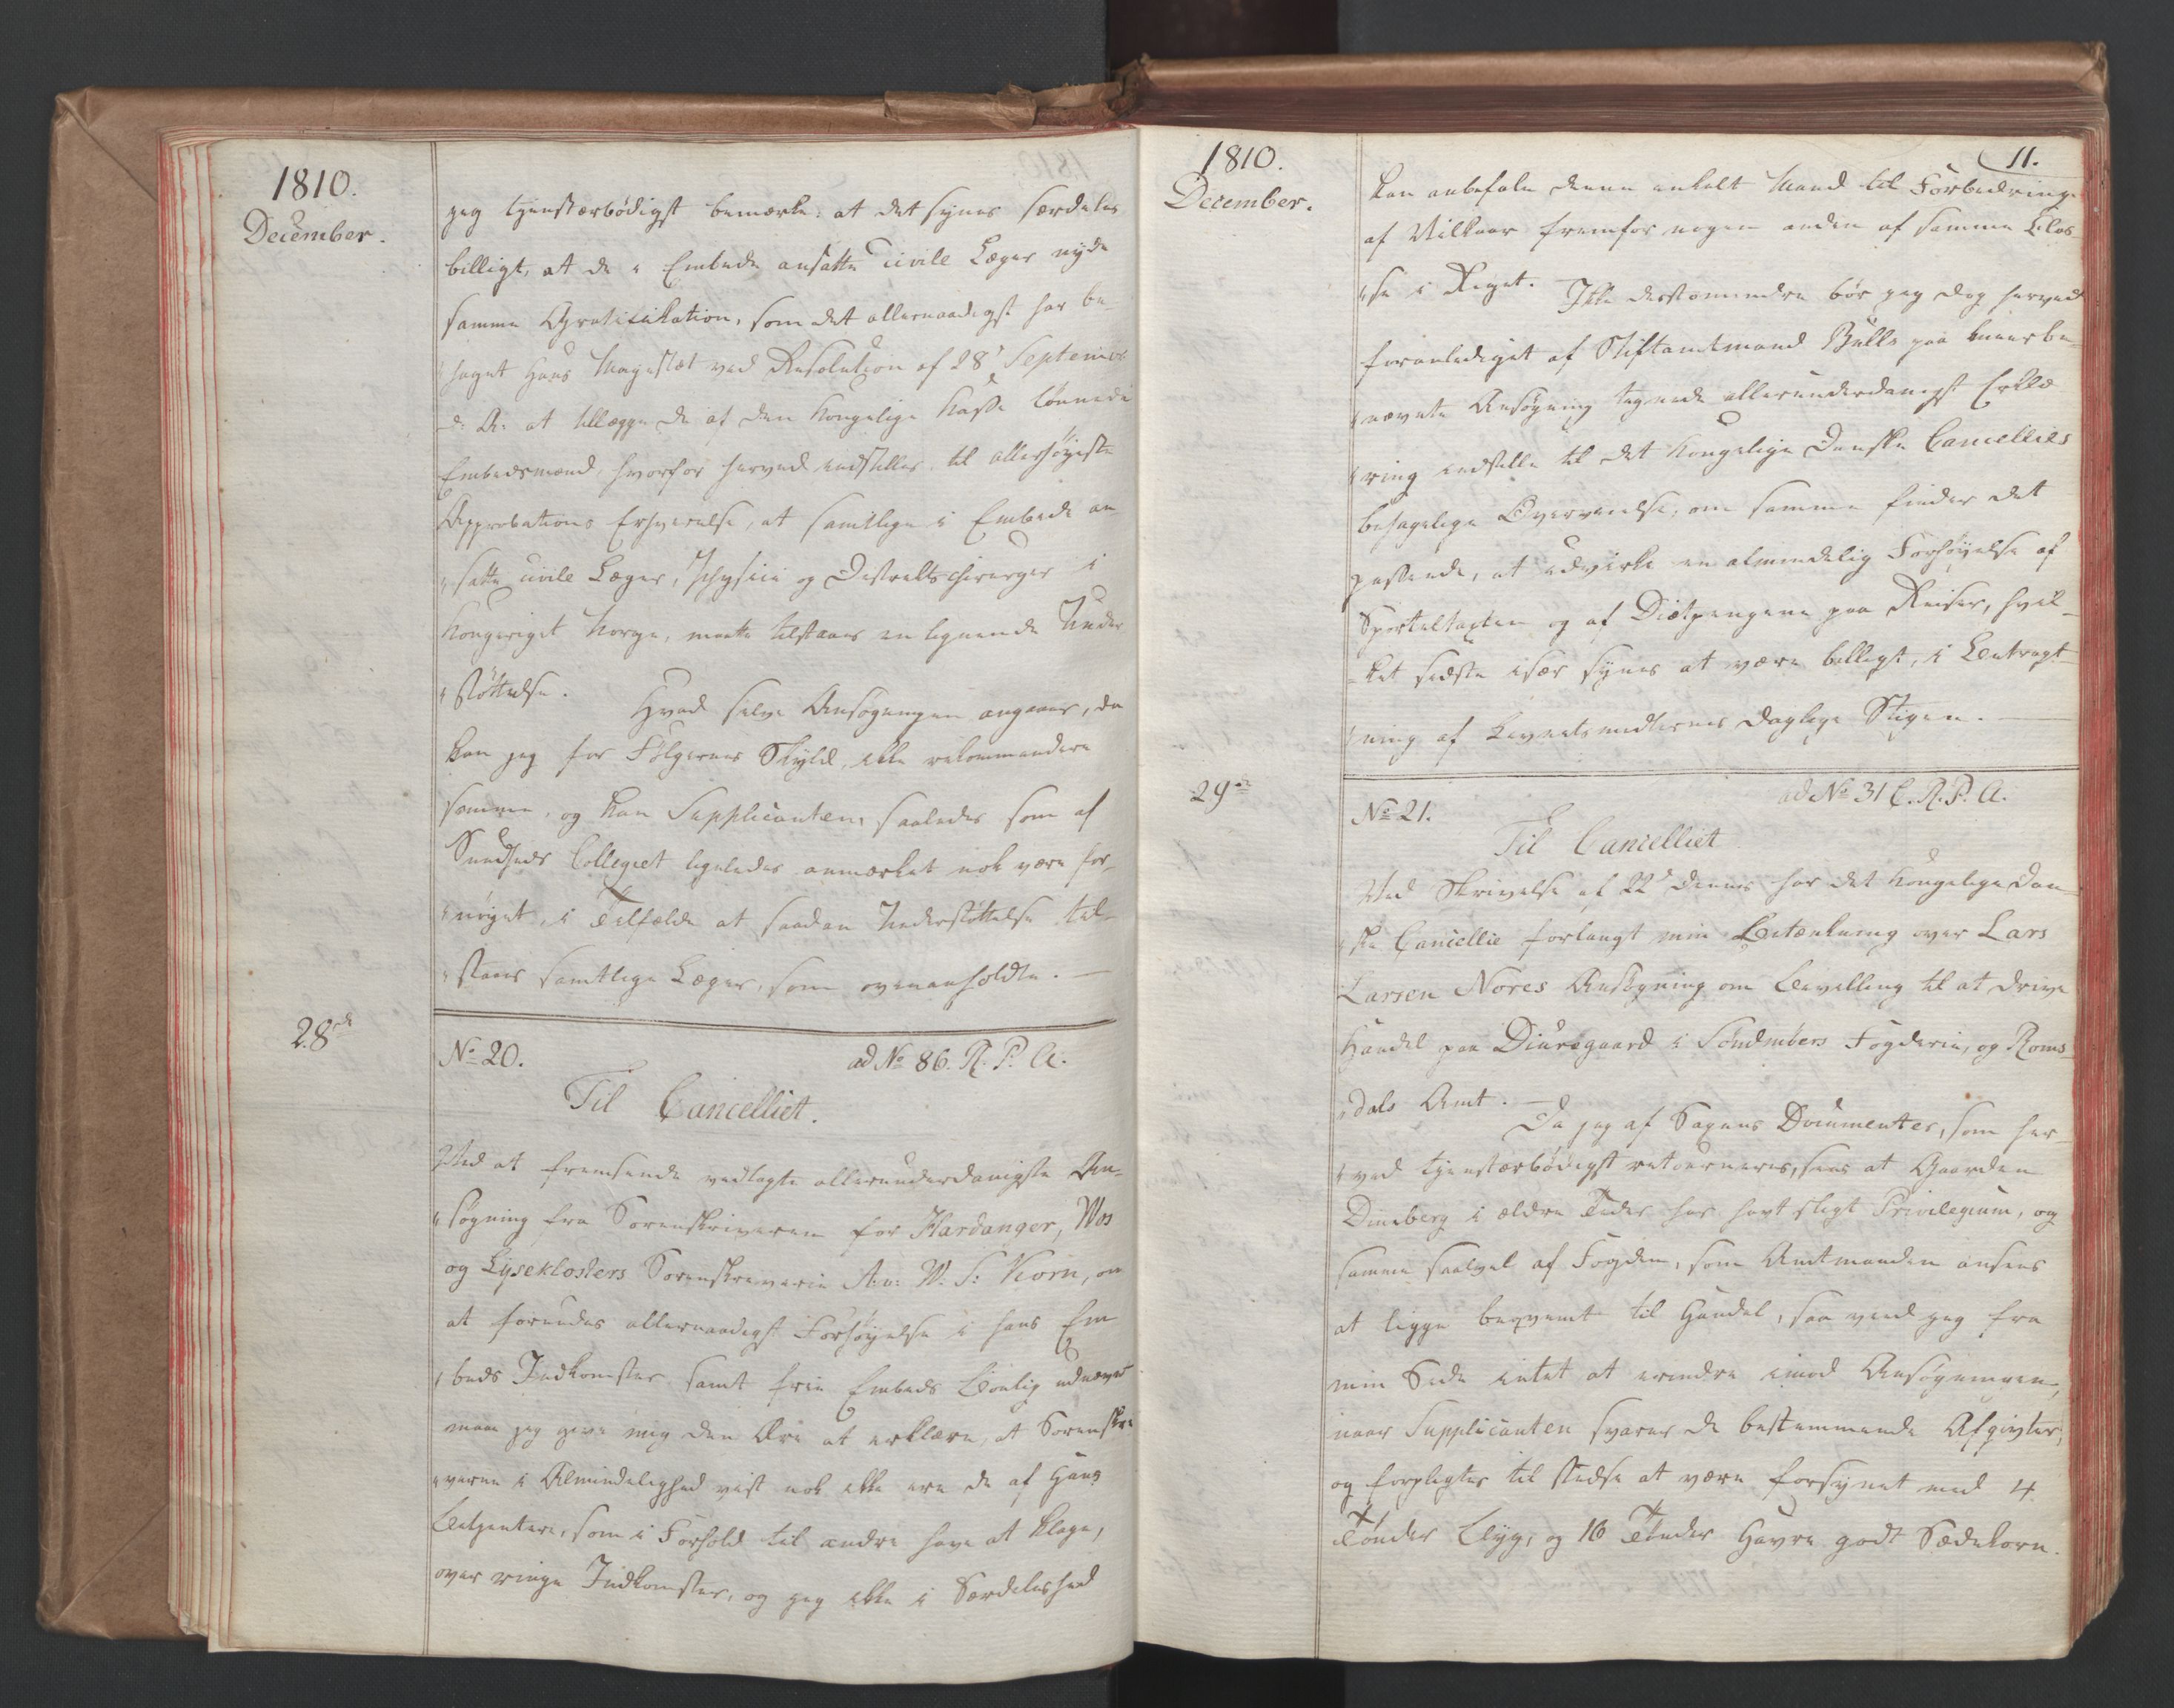 1810.
December.
jeg tjenstærbödigst bemærke: at det synes særdeles
billigt, at de i Embede ansatte civile Læger nyde
samme Gratification, som det allernaadigst har be-
haget Hans Majestæt ved Resolution af 28de September
d: A: at tillægge de af den Kongelige Kasse lönnede
Embedsmænd, hvorfor herved indstilles til allerhöieste
Approbations Erhvervelse, at samtlige i Embede an-
satte civile Læger, Physici og Districtschirurger i
Kongeriget Norge, maatte tilstaaes en lignende Under
stöttelse. Hvad selve Ansögningen angaaer, da
kan jeg for Fölgernes Skyld, ikke rekommandere
samme, og kan Supplicanten, saaledes som af
Sundheds Collegiet ligeledes anmærket nok være for-
nöiet, i Tilfælde at saadan Understöttelse til-
staaes samtlige Læger, som ovenanholdte. —
28de
No 20. ad No 86. R. P. A.
Til Cancelliet.
Ved at fremsende vedlagte allerunderdanigste An-
sögning fra Sorenskriveren for Hardanger, Wos
og Lyseklosters Sorenskriverie A: v: W. S: Koren, om
at forundes allernaadigst Forhöyelse i hans Em
beds Indkomster samt frie Embeds Boelig udnævnt
maa jeg give mig den Ære at erklære, at Sorenskri
verne i Almindelighed vist nok ikke ere de af Hans
Betjentere, som i Forhold til andre have at klage,
over ringe Indkomster, og jeg ikke i Særdeleshed
1810.
December.
11.
kan anbefale denne enkelt Mand til Forbedringe
af Vilkaar fremfor nogen anden af samme Clas-
se i Riget. Ikke destomindre bör jeg dog herved
foranlediget af Stiftamtmand Bulls paa bemeldte
nævnte Ansögning tegnede allerunderdanigst Erklæ
ring indstille til det Kongelige Danske Cancellies
behagelige Overveielse, om samme finder det
passende, at udvirke en almindelig Forhöyelse af
Sporteltaxten og af Diætpengene paa Reiser, hvil-
ket sidste især synes at være billigt, i Betragt-
ning af Levnetsmidlernes daglige Stigen. —
29de
No 21. ad No 31 C. R. P. A.
Til Cancelliet
Ved Skrivelse af 22de dennes har det Kongelige Dan
ske Cancellie forlangt min Betænkning over Lars
Larsen Nores Ansögning om Bevilling til at drive
Handel paa Diursgaard i Söndmöers Fogderie, og Roms
dals Amt. —
Da jeg af Sagens Documenter, som her-
ved tjenstærbödigst retourneres, sees at Gaarden
Diurberg i ældre Tider har havt sligt Privilegium, og
samme saavel af Fogden, som Amtmanden ansees
at ligge beqvemt til Handel, saa veed jeg fra
min Side intet at erindre imod Ansögningen,
naar Supplicanten svarer de bestemmende Afgivter,
og forpligtes til stedse at være forsynet med 4
Tönder Byg, og 16 Tönder Havre godt Sædekorn.